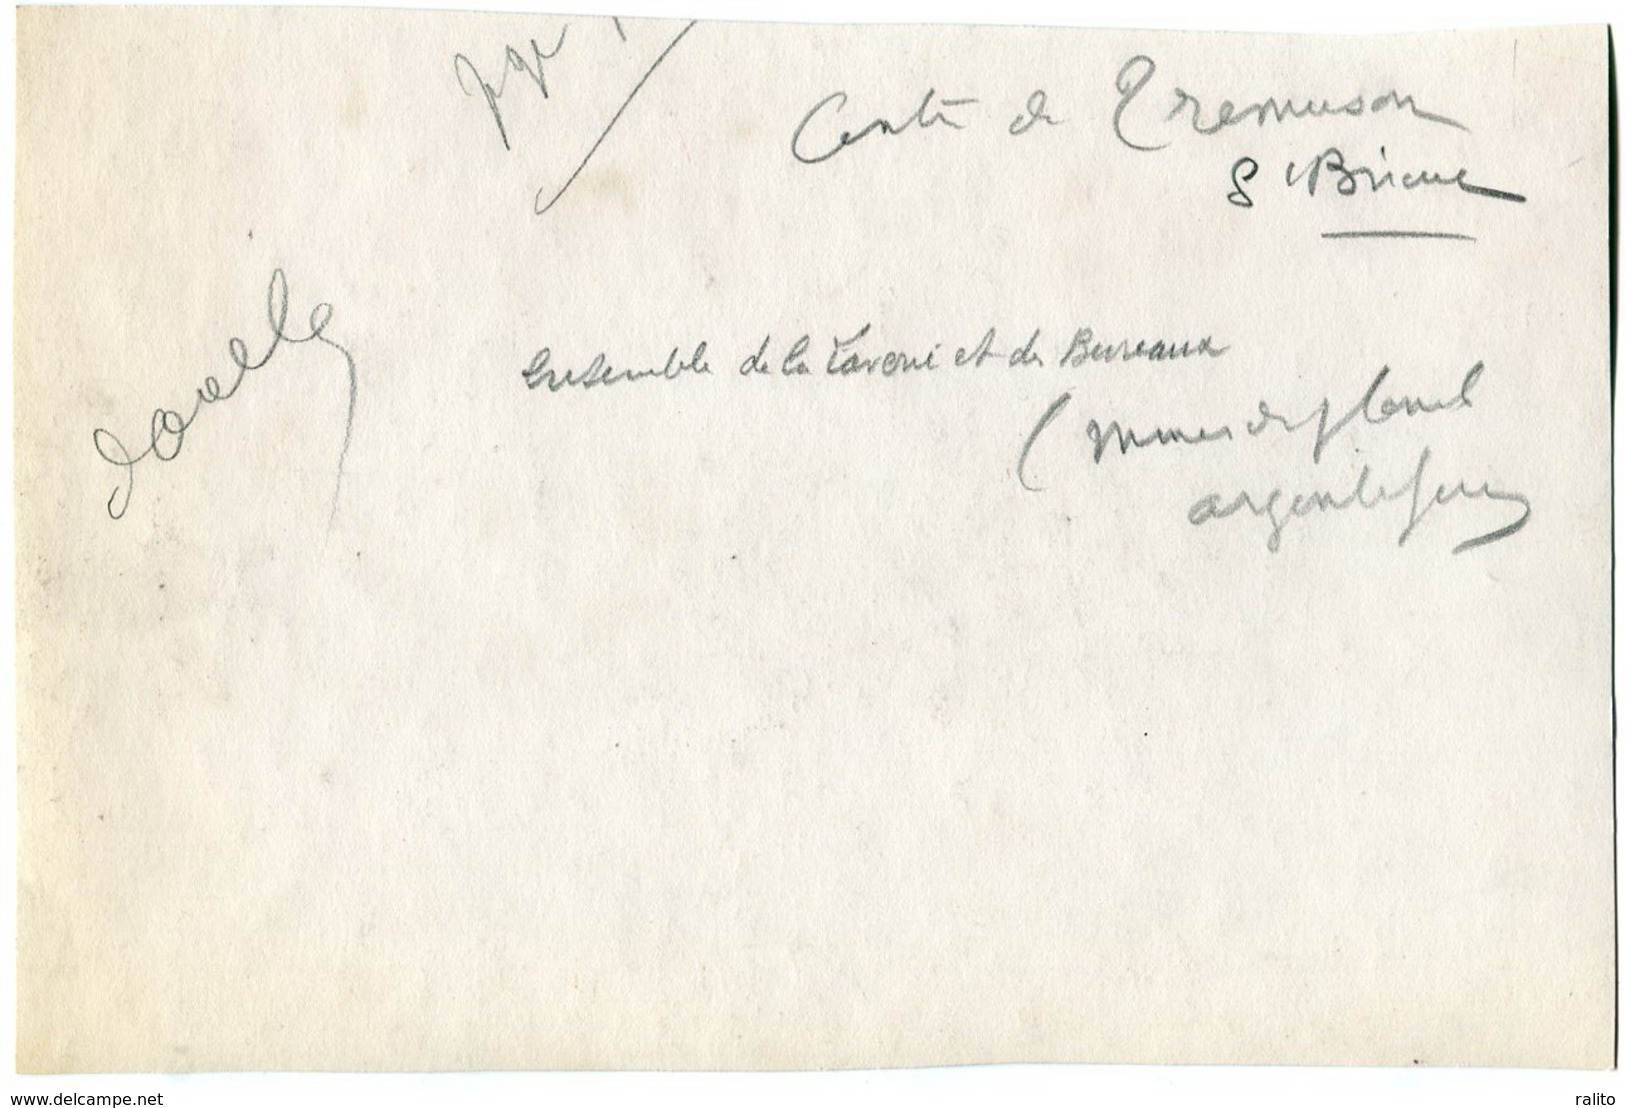 page
Centre de Tremuson
St Brieuc
double
Ensemble de la Laverie et des Bureaux
(Mines de plomb
argentifère
www.delcampe.net
ralito